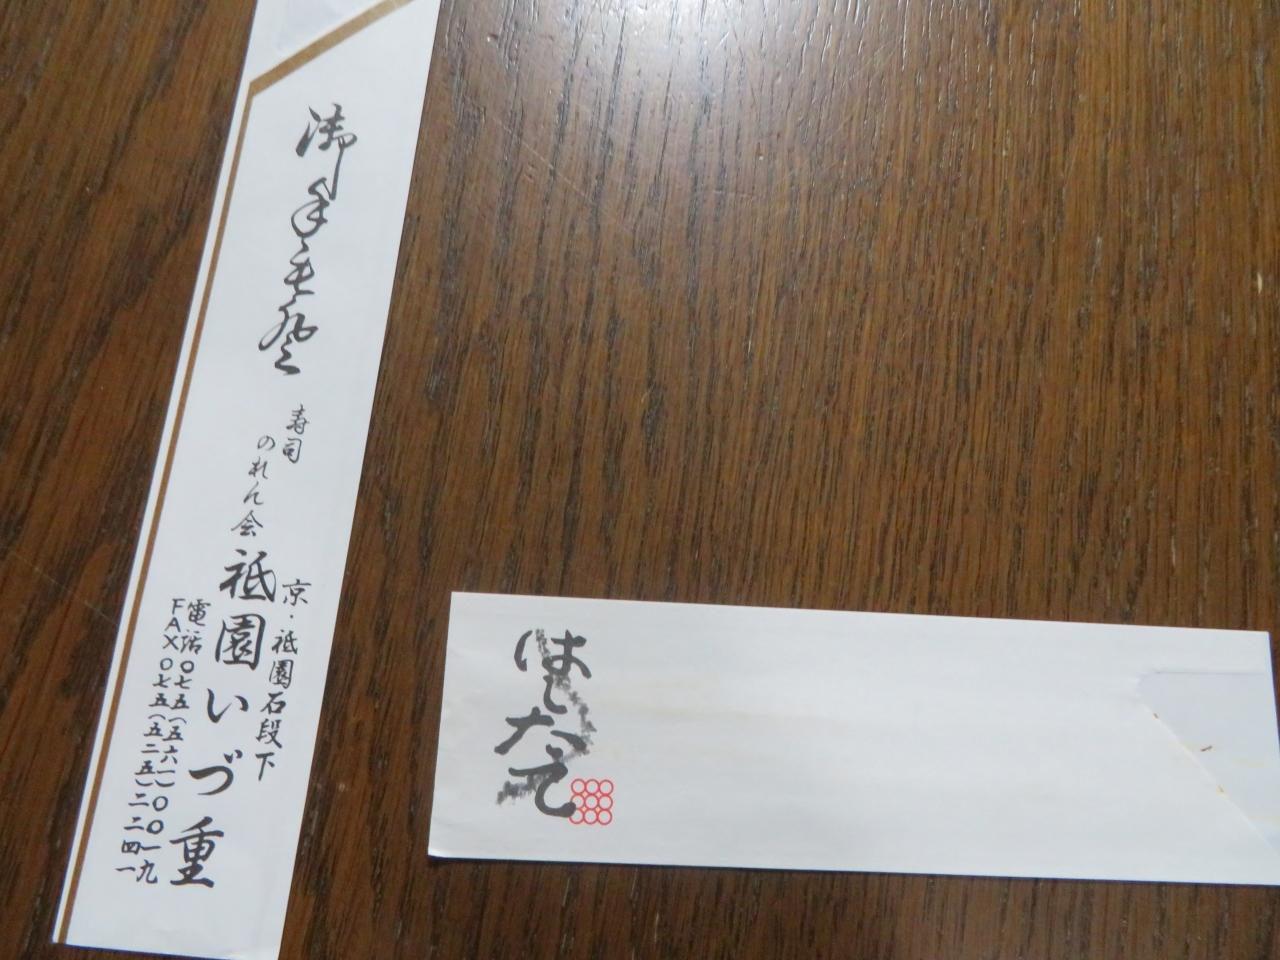 御手もと
寿司
のれん会
京・祇園石段下
祇園いづ重
電話〇七五(五六一)〇〇一九
FAX〇七五(五二五)二二四一
はしたて